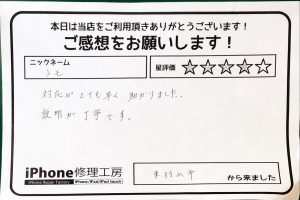 本日は当店をご利用頂きありがとうございます!
ご感想をお願いします!
ニックネーム
トモ
星評価 ☆☆☆☆☆
対応がとても早く助かりました。
説明が丁寧です。
iPhone修理工房
iPhone Repair Factory iPhone/iPad/iPod touch
から来ました